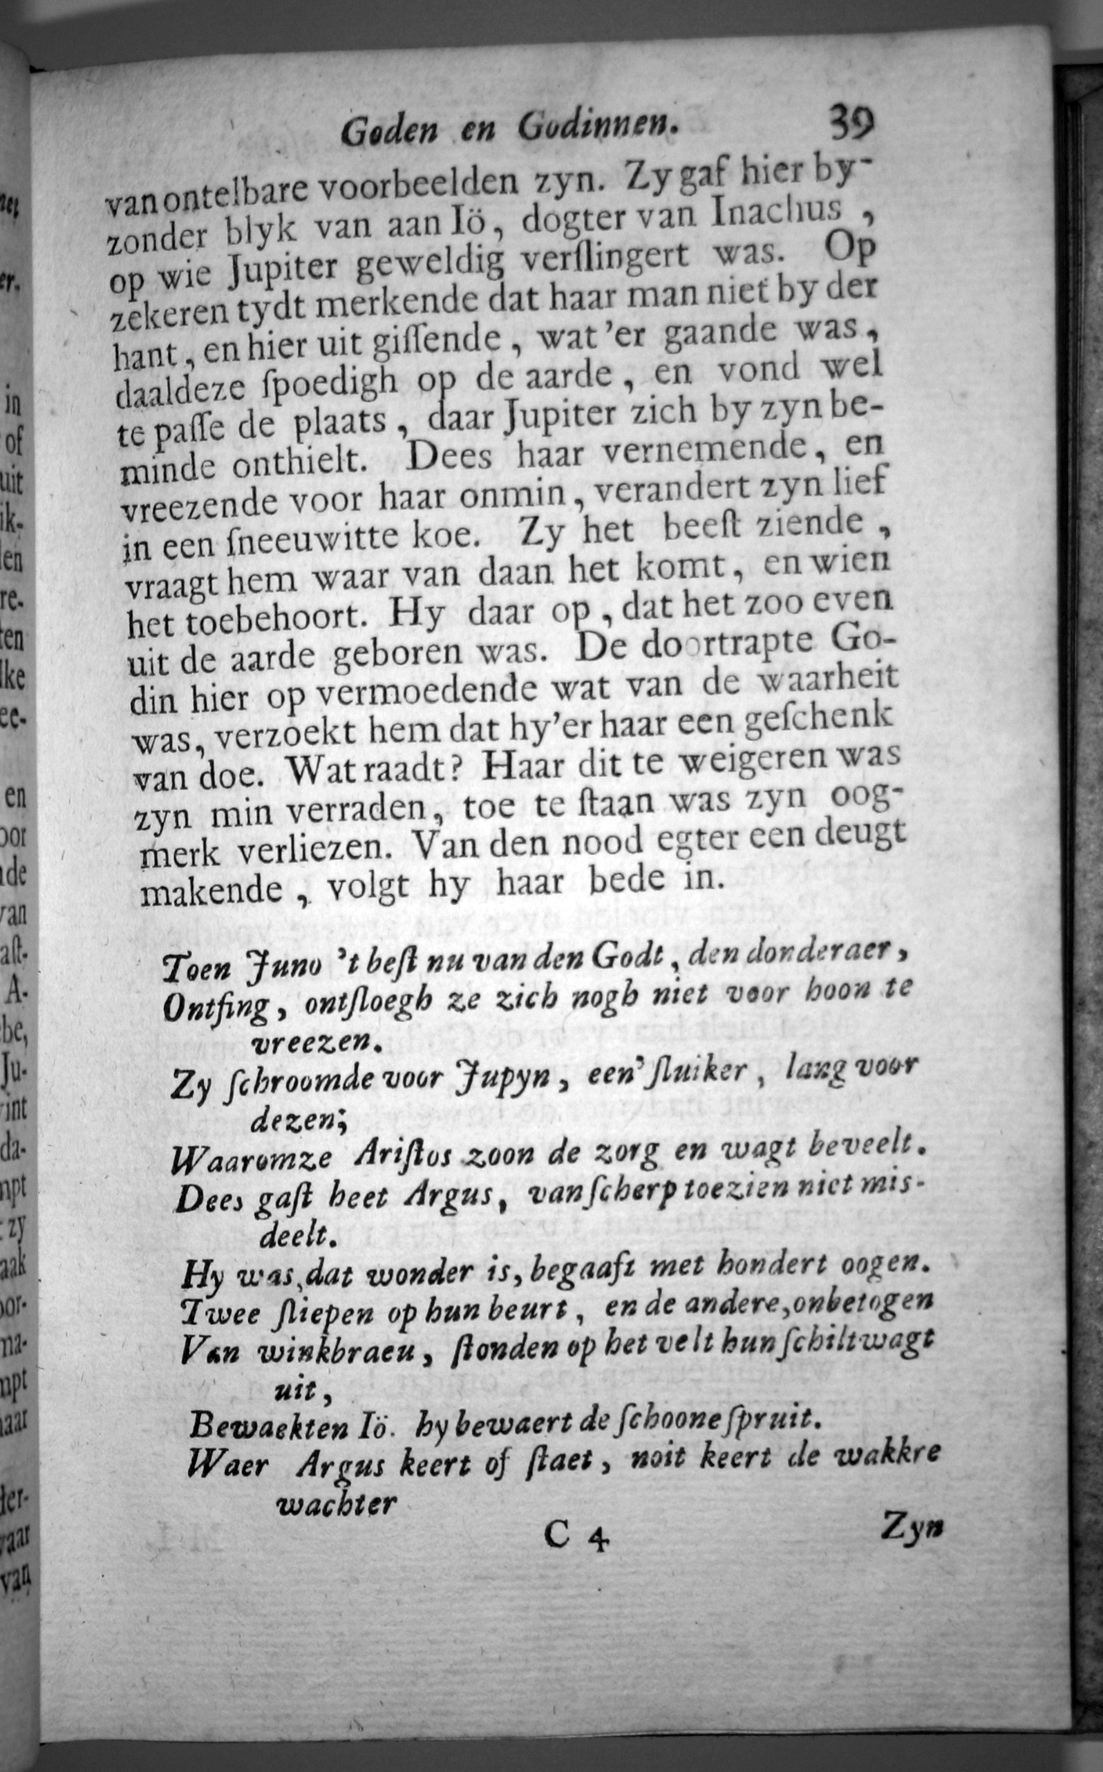 Goden en Godinnen. 39
van ontelbare voorbeelden zyn. Zy gaf hier by-
zonder blyk van aan Iö, dogter van Inachus,
op wie Jupiter geweldig verſlingert was. Op
zekeren tydt merkende dat haar man niet by der
hant, en hier uit giſſende, wat 'er gaande was,
daaldeze ſpoedigh op de aarde, en vond wel
te paſſe de plaats, daar Jupiter zich by zyn be-
minde onthielt. Dees haar vernemende, en
vreezende voor haar onmin, verandert zyn lief
in een ſneeuwitte koe. Zy het beeſt ziende,
vraagt hem waar van daan het komt, en wien
het toebehoort. Hy daar op, dat het zoo even
uit de aarde geboren was. De doortrapte Go-
din hier op vermoedende wat van de waarheit
was, verzoekt hem dat hy'er haar een geſchenk
van doe. Wat raadt? Haar dit te weigeren was
zyn min verraden, toe te ſtaan was zyn oog-
merk verliezen. Van den nood egter een deugt
makende, volgt hy haar bede in.
Toen Juno 't beſt nu van den Godt, den donderaer,
Ontfing, ontſloegh ze zich nogh niet voor hoon te
vreezen.
Zy ſchroomde voor Jupyn, een' ſluiker, lang voor
dezen;
Waaromze Ariſtos zoon de zorg en wagt beveelt.
Dees gaſt heet Argus, van ſcherp toezien niet mis-
deelt.
Hy was, dat wonder is, begaaft met hondert oogen.
Twee ſliepen op hun beurt, en de andere, onbetogen
Van winkbraeu, ſtonden op het velt hun ſchiltwagt
uit,
Bewaekten Iö. hy bewaert de ſchoone ſpruit.
Waer Argus keert of ſtaet, noit keert de wakkre
wachter
C 4 Zyn